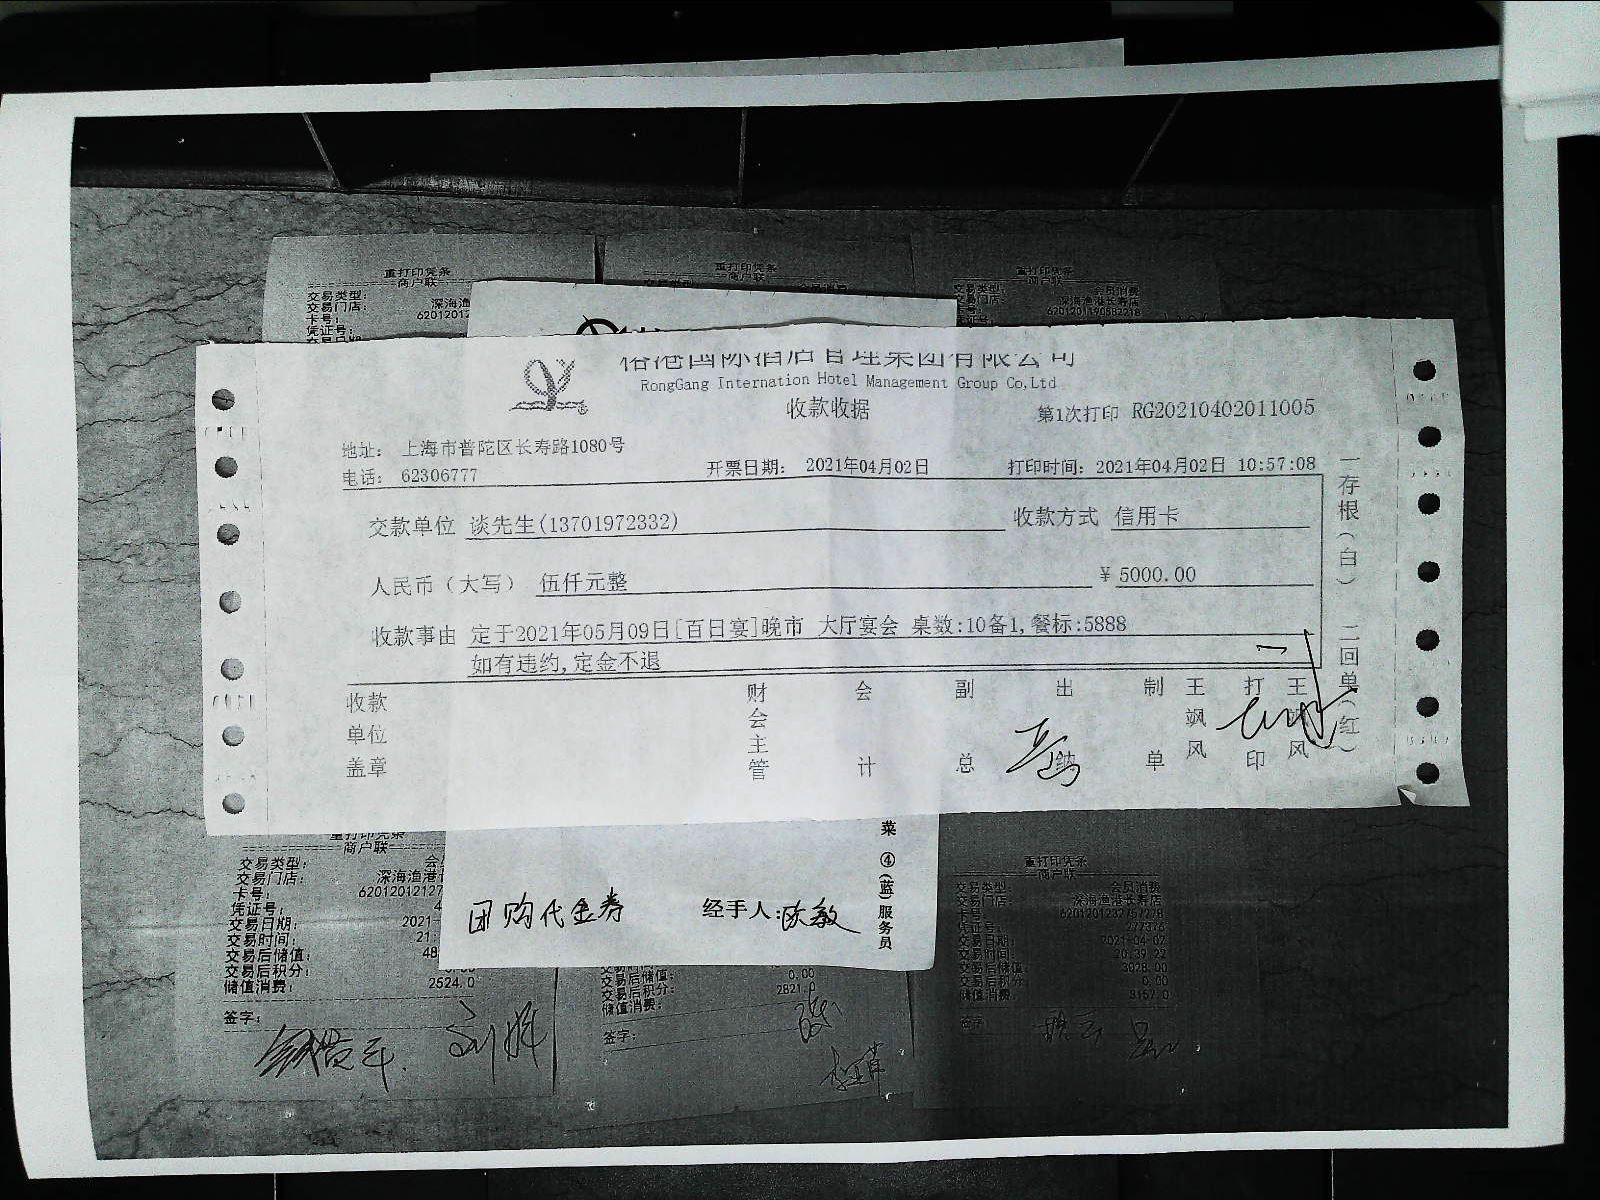 重打印凭条
商户联
交易类型:
交易门店: 深海渔
卡号: 6201201
凭证号:
重打印凭条
商户联
重打印凭条
交易类型: 会员消费
交易门店: 深海渔港长寿店
裕港国际酒店管理集团有限公司
RongGang Internation Hotel Management Group Co,Ltd
收款收据
第1次打印 RG20210402011005
地址: 上海市普陀区长寿路1080号
电话: 62306777
开票日期: 2021年04月02日
打印时间: 2021年04月02日 10:57:08
交款单位 谈先生(13701972332)
收款方式 信用卡
人民币(大写) 伍仟元整
¥ 5000.00
收款事由 定于2021年05月09日[百日宴]晚市 大厅宴会 桌数:10备1,餐标:5888
如有违约,定金不退
收款单位盖章
财会主管
会计
副总
出纳
制单
王飒风
打印
王飒风
一存根(白) 二回单(红)
重打印凭条
商户联
交易类型: 会
交易门店: 深海渔港
卡号: 62012012127
凭证号: 4
交易日期: 2021-
交易时间: 21:
交易后储值: 48
交易后积分:
储值消费: 2524.0
签字:
菜 ④(蓝)服务员
团购代金券
经手人:陈敏
交易后储值: 0.00
交易后积分: 2821.
储值消费:
签字:
重打印凭条
商户联
交易类型: 会员消费
交易门店: 深海渔港长寿店
卡号:
凭证号:
交易日期: 2021-04-02
交易时间: 20:39:22
交易后储值: 3028.00
交易后积分: 0.00
储值消费: 3157.0
签字: